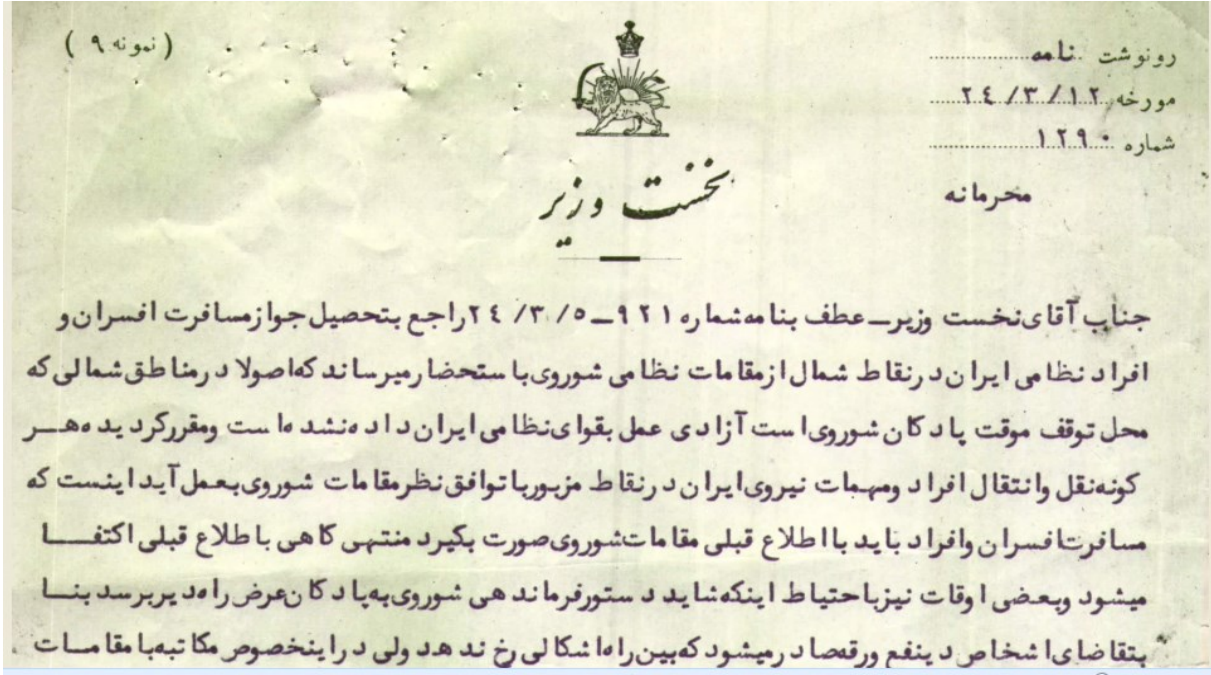 رونوشت نامه
مورخه ۲۴/۳/۱۲
شماره ۱۲۹۰
محرمانه
(نمونه ۹)
نخست وزیر
جناب آقای نخست وزیر ــ عطف بنامه شماره ۹۲۱ ــ ۲۴/۳/۵ راجع بتحصیل جواز مسافرت افسران و
افراد نظامی ایران در نقاط شمال از مقامات نظامی شوروی باستحضار میرساند که اصولا در مناطق شمالی که
محل توقف موقت پادکان شوروی است آزادی عمل بقوای نظامی ایران داده نشده است ومقرر کردیده هــر
کونه نقل وانتقال افراد ومهمات نیروی ایران در نقاط مزبور با توافق نظر مقامات شوروی بعمل آید اینست که
مسافرت افسران وافراد باید با اطلاع قبلی مقامات شوروی صورت بکیرد منتهی کاهی باطلاع قبلی اکتفــا
میشود وبعضی اوقات نیز باحتیاط اینکه شاید دستور فرماندهی شوروی به پادکان عرض راه دیر برسد بنــا
بتقاضای اشخاص دینفع ورقه صادر میشود که بین راه اشکالی رخ ندهد ولی در اینخصوص مکاتبه با مقامــات